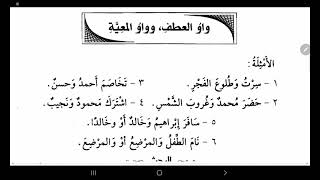 واوُ العَطفِ، وواوُ المَعِيَّةِ
الأَمْثِلَةُ :
١ - سِرْتُ وَطُلوعَ الفَجْرِ. ٣ - تَخَاصَمَ أَحمدُ وَحسنٌ.
٢ - حَضَرَ مُحمدٌ وَغُروبَ الشَّمْسِ. ٤ - اشْتَرَكَ مَحمودٌ وَنَجيبٌ.
٥ - سَافَرَ إِبراهيمُ وَخَالدٌ أَوْ وخالدًا.
٦ - نَامَ الطِّفْلُ والمُرْضِعُ أَوْ والمُرْضِعَ.